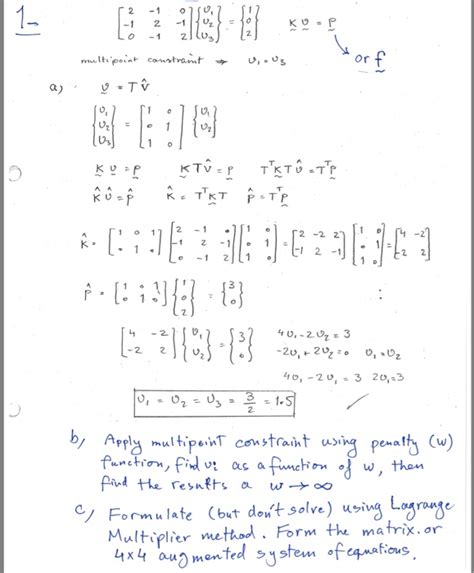 1- [2 -1 0; -1 2 -1; 0 -1 2] {υ₁; υ₂; υ₃} = {1; 0; 2} K υ = p
or f
multipoint constraint → υ₁ = υ₃
a) υ = T υ̂
{υ₁; υ₂; υ₃} = [1 0; 0 1; 1 0] {υ₁; υ₂}
K υ = p K T υ̂ = p TᵀK T υ̂ = Tᵀp
K̂ υ̂ = p̂ K̂ = TᵀK T p̂ = Tᵀp
K̂ = [1 0 1; 0 1 0] [2 -1 0; -1 2 -1; 0 -1 2] [1 0; 0 1; 1 0] = [2 -2 2; -1 2 -1] [1 0; 0 1; 1 0] = [4 -2; -2 2]
p̂ = [1 0 1; 0 1 0] {1; 0; 2} = {3; 0}
[4 -2; -2 2] {υ₁; υ₂} = {3; 0} 4υ₁ - 2υ₂ = 3
-2υ₁ + 2υ₂ = 0 υ₁ = υ₂
4υ₁ - 2υ₁ = 3 2υ₁ = 3
υ₁ = υ₂ = υ₃ = 3/2 = 1.5
b) Apply multipoint constraint using penalty (w)
function, find υi as a function of w, then
find the results a w → ∞
c) Formulate (but don't solve) using Lagrange
Multiplier method. Form the matrix. or
4x4 augmented system of equations.